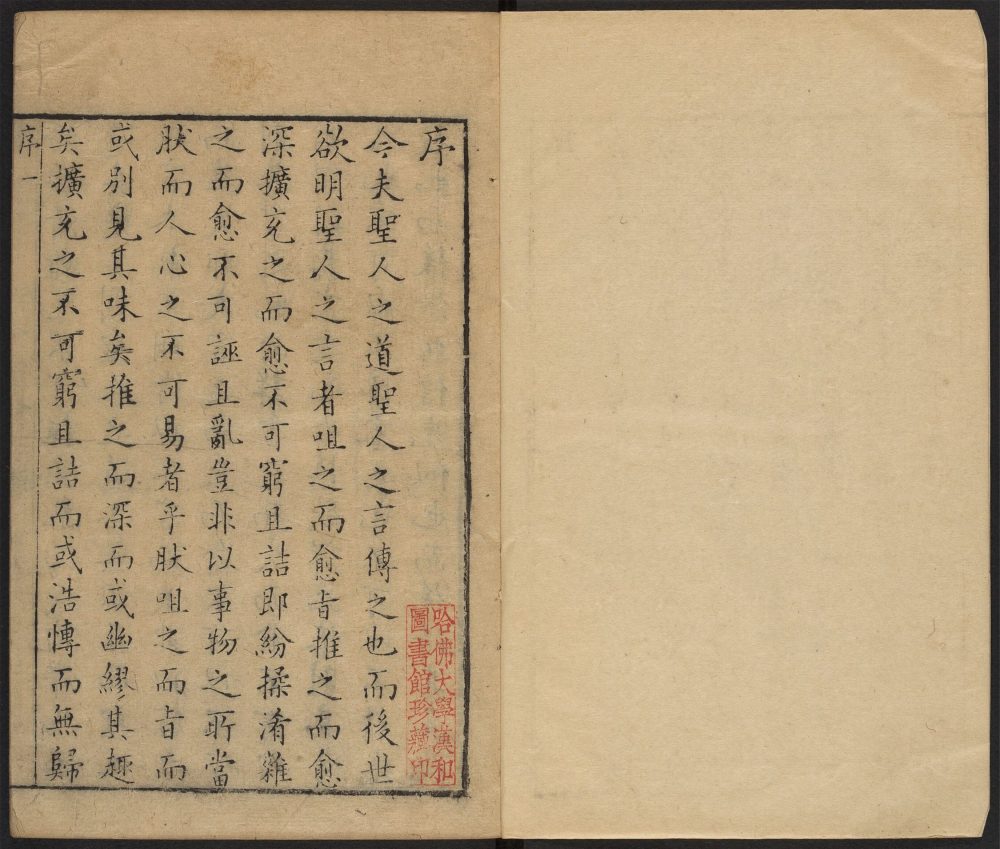 序
今夫聖人之道聖人之言傳之也而後世
欲明聖人之言者咀之而愈旨推之而愈
深擴充之而愈不可窮且詰即紛揉淆雜
之而愈不可誣且亂豈非以事物之所當
肰而人心之不可易者乎肰咀之而旨而
或別見其味矣推之而深而或幽繆其趣
矣擴充之不可窮且詰而或浩慱而無歸
序 一
哈佛大學漢和
圖書館珍藏印